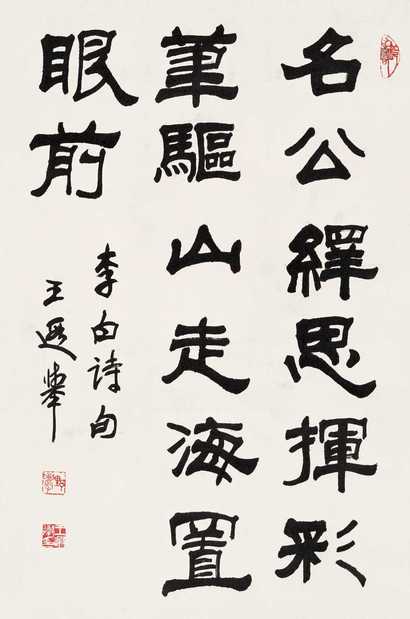 名公繹思揮彩
筆驅山走海置
眼前
李白诗句
王遐舉